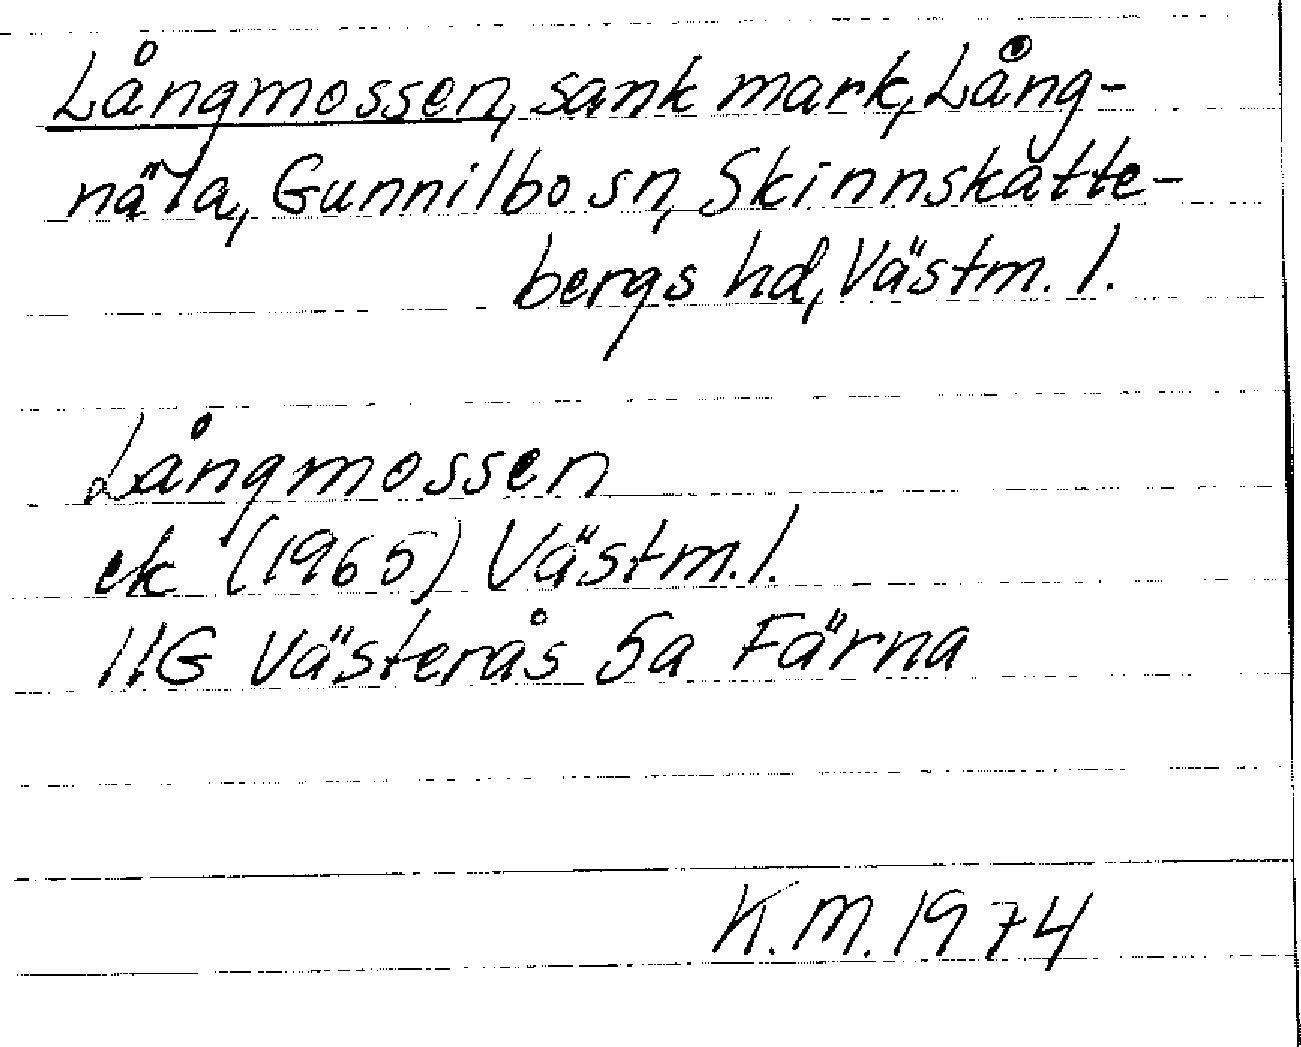 Långmossen, sank mark, Lång-
nära, Gunnilbo sn, Skinnskatte-
bergs hd, Västm. l.
Långmossen
ek (1965) Västm. l.
11G Västerås 5a Färna
K. M. 1974